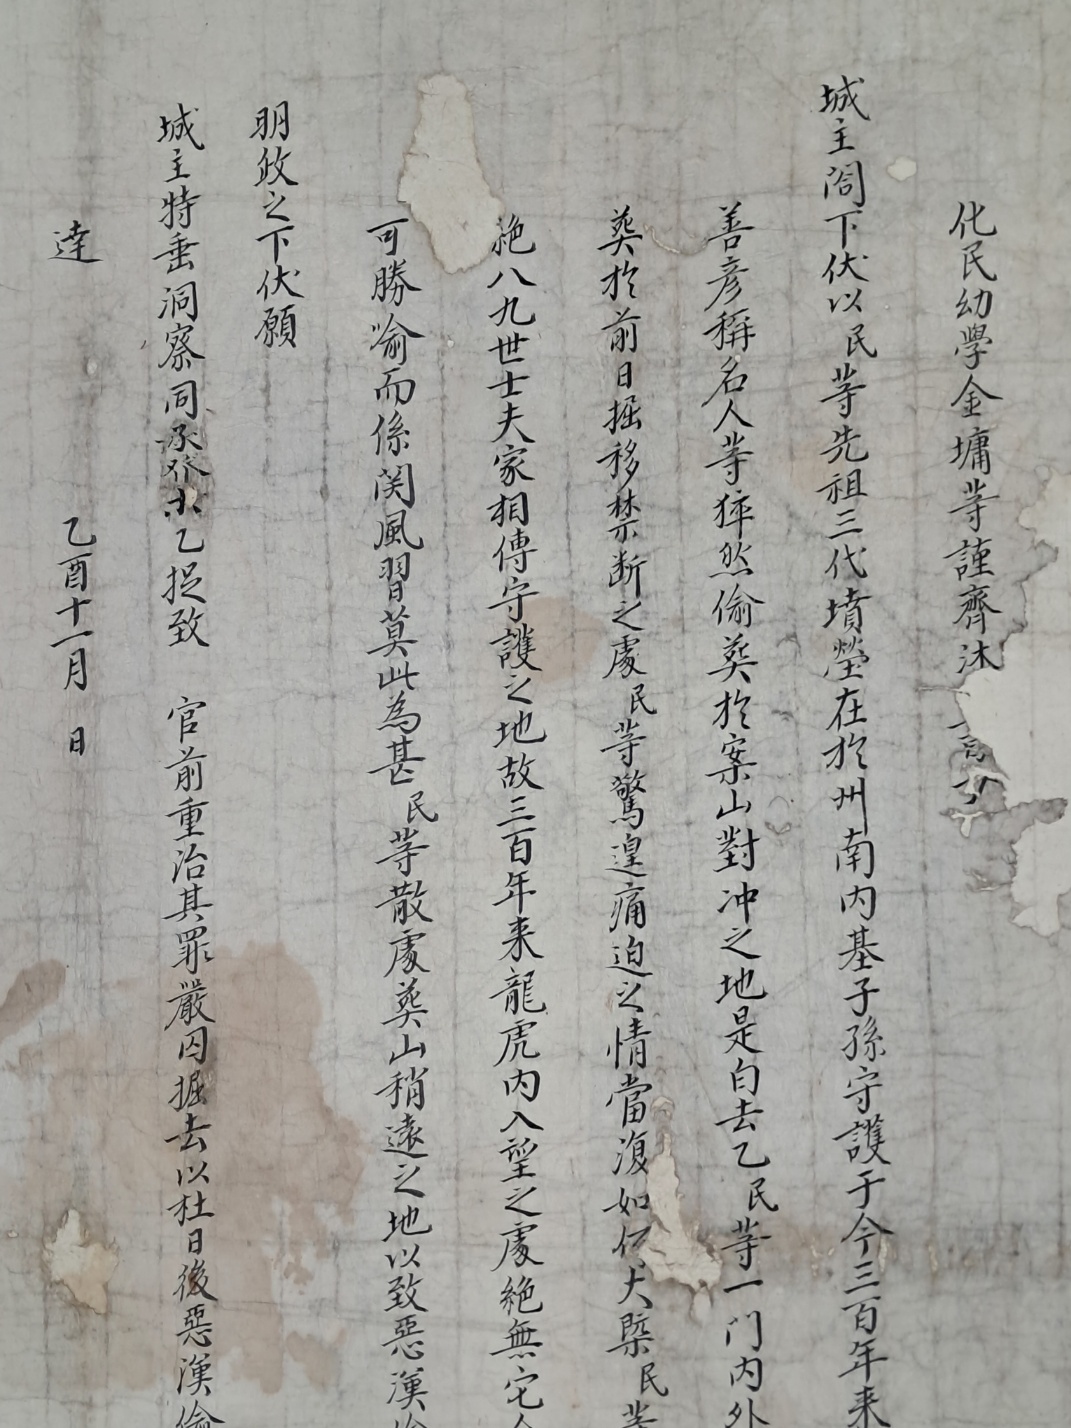 化民幼學金墉等謹齊沐
城主閤下伏以民等先祖三代墳塋在於州南內基子孫守護于今三百年来
善彦稱名人等猝然偷葬於案山對冲之地是白去乙民等一门內外
葬於前日掘移禁断之處民等驚遑痛迫之情當復如何大槩民等
絶八九世士夫家相傳守護之地故三百年来龍虎內入望之處絶無宅
可勝喻而係関風習莫此為甚民等散處葬山稍遠之地以致惡漢偷
明政之下伏願
城主特垂洞察同乙捉致 官前重治其罪嚴囚掘去以杜日後惡漢偷
達
乙酉十一月 日